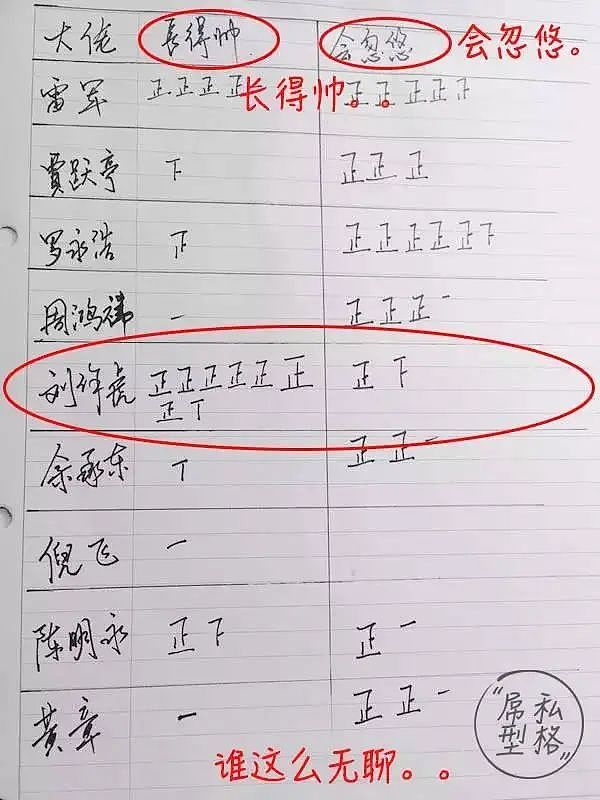 大佬 長得帅 会忽悠 会忽悠。
雷军 正正正正 长得帅。。 正正正正下
贾跃亭 下 正正正
罗永浩 正 正正正正正下
周鸿祎 一 正正正一
刘作虎 正正正正正正 正下
正丅
余承东 丅 正正一
倪飞 一
陈明永 正下 正一
黄章 一 正正一
"屌型
私格"
谁这么无聊。。